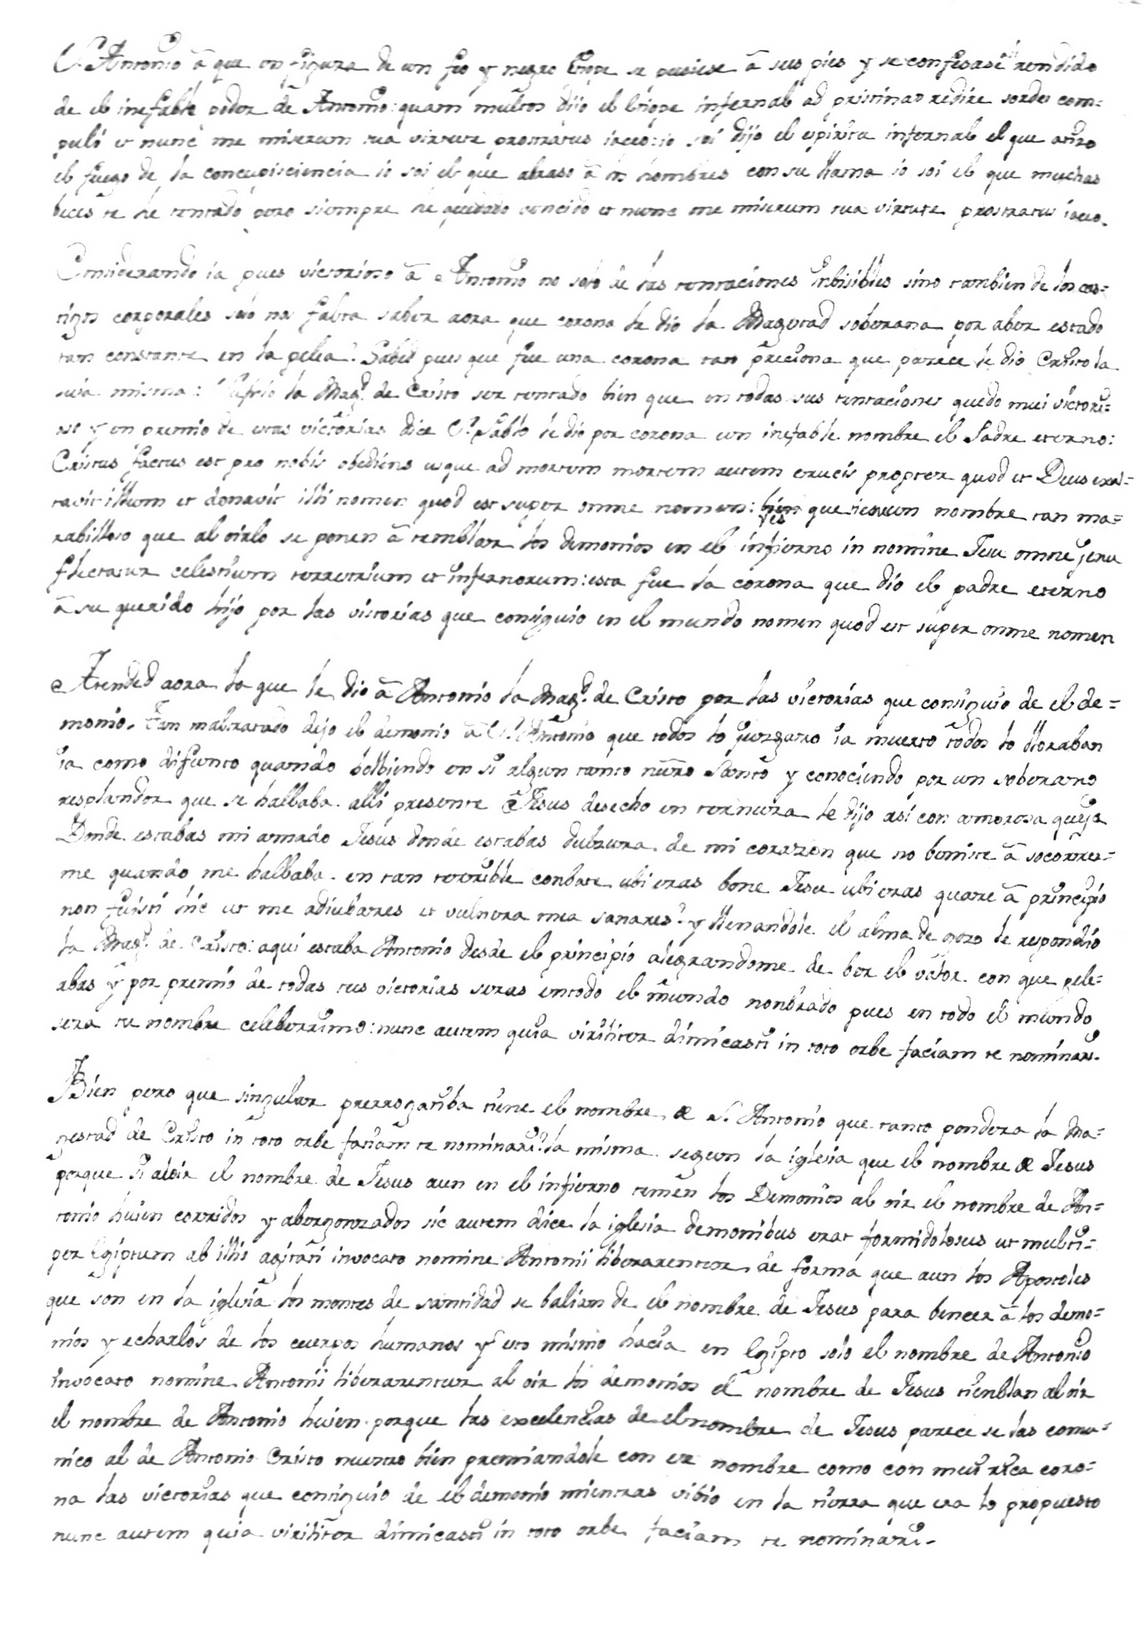 S. Antonio â que en figura de un feo y negro Etiope se pusiese â sus pies y se confesase rendido
de el inefable poder de Antonio: quam multos dijo el etiope infernal ad pristinas redire sordes com=
puli et nunc me miserum tua virtute prostratus iaceo: io soi dijo el espiritu infernal el que atizo
el fuego de la concupisciencia io soi el que abraso â los hombres con su llama io soi el que muchas
beces te he tentado pero siempre he quedado vencido et nunc me miserum tua virtute prostratus iaceo.
Considerando ia pues victorioso â Antonio no solo de las tentaciones imbisibles sino tambien de los cas=
tigos corporales solo nos falta saber aora que corona le dio la Magestad soberana por aber estado
tan constante en la pelea? Sabed pues que fue una corona tan preciosa que parece le dio Cristo la
suia misma: Sufrio la Magd. de Cristo ser tentado bien que en todas sus tentaciones quedo mui victori=
oso y en premio de estas victorias dice S. Pablo le dio por corona un inefable nombre el Padre eterno:
Cristus factus est pro nobis obediens usque ad mortem mortem autem crucis propter quod et Deus exal=
tavit illum et donavit illi nomen quod est super omne nomen: que nombre tan ma=
rabilloso que al oirlo se ponen â temblar los demonios en el infierno in nomine Jesu omne jenu
flectatur celestium terrestrium et infernorum: esta fue la corona que dio el padre eterno
â su querido hijo por las victorias que consiguio en el mundo nomen quod est super omne nomen
Atended aora la que le dio â Antonio la Magd. de Cristo por las victorias que consiguio de el de=
monio. Tan maltratado dejo el demonio â S. Antonio que todos lo juzgaron ia muerto todos lo lloraban
ia como difunto quando bolbiendo en si algun tanto nuestro Santo y conociendo por un soberano
resplandor que se hallaba alli presente Jesus desecho en ternura le dijo asi con amorosa queja
Donde estabas mi amado Jesus donde estabas dulzura de mi corazon que no beniste â socorrer=
me quando me hallaba en tan terrible conbate ubi eras bone Jesu ubi eras quare â principio
non fuisti hic ut me adiubares et vulnera mea sanares? y llenandole el alma de gozo le respondio
la Magd. de Cristo: aqui estaba Antonio desde el principio alegrandome de ber el valor con que pele=
abas y por premio de todas tus victorias seras en todo el mundo nonbrado pues en todo el mundo
sera tu nombre celeberrimo: nunc autem quia viriliter dimicasti in toto orbe faciam te nominari.
Bien pero que singular prerrogatiba tiene el nombre de S. Antonio que tanto pondera la Ma=
gestad de Cristo in toto orbe faciam te nominari? la misma segun la iglesia que el nombre de Jesus
porque si al oir el nombre de Jesus aun en el infierno temen los Demonios al oir el nombre de An=
tonio huien corridos y abergonzados sic autem dice la iglesia demonibus erat formidolosus ut multi=
per Egiptum ab illis agitati invocato nomine Antonii liberarentur, de forma que aun los Apostoles
que son en la iglesia los montes de santidad se balian de el nombre de Jesus para bencer â los demo=
nios y echarlos de los cuerpos humanos y esto mismo hacia en Egipto solo el nombre de Antonio
invocato nomine Antonii liberarentur al oir los demonios el nombre de Jesus tienblan al oir
el nombre de Antonio huien porque las excelencias de el nombre de Jesus parece se las comu=
nico al de Antonio Cristo nuestro bien premiandole con ese nombre como con mui rica coro=
na las victorias que consiguio de el demonio mientras vibio en la tierra que era lo propuesto
nunc autem quia viriliter dimicasti in toto orbe faciam te nominari.